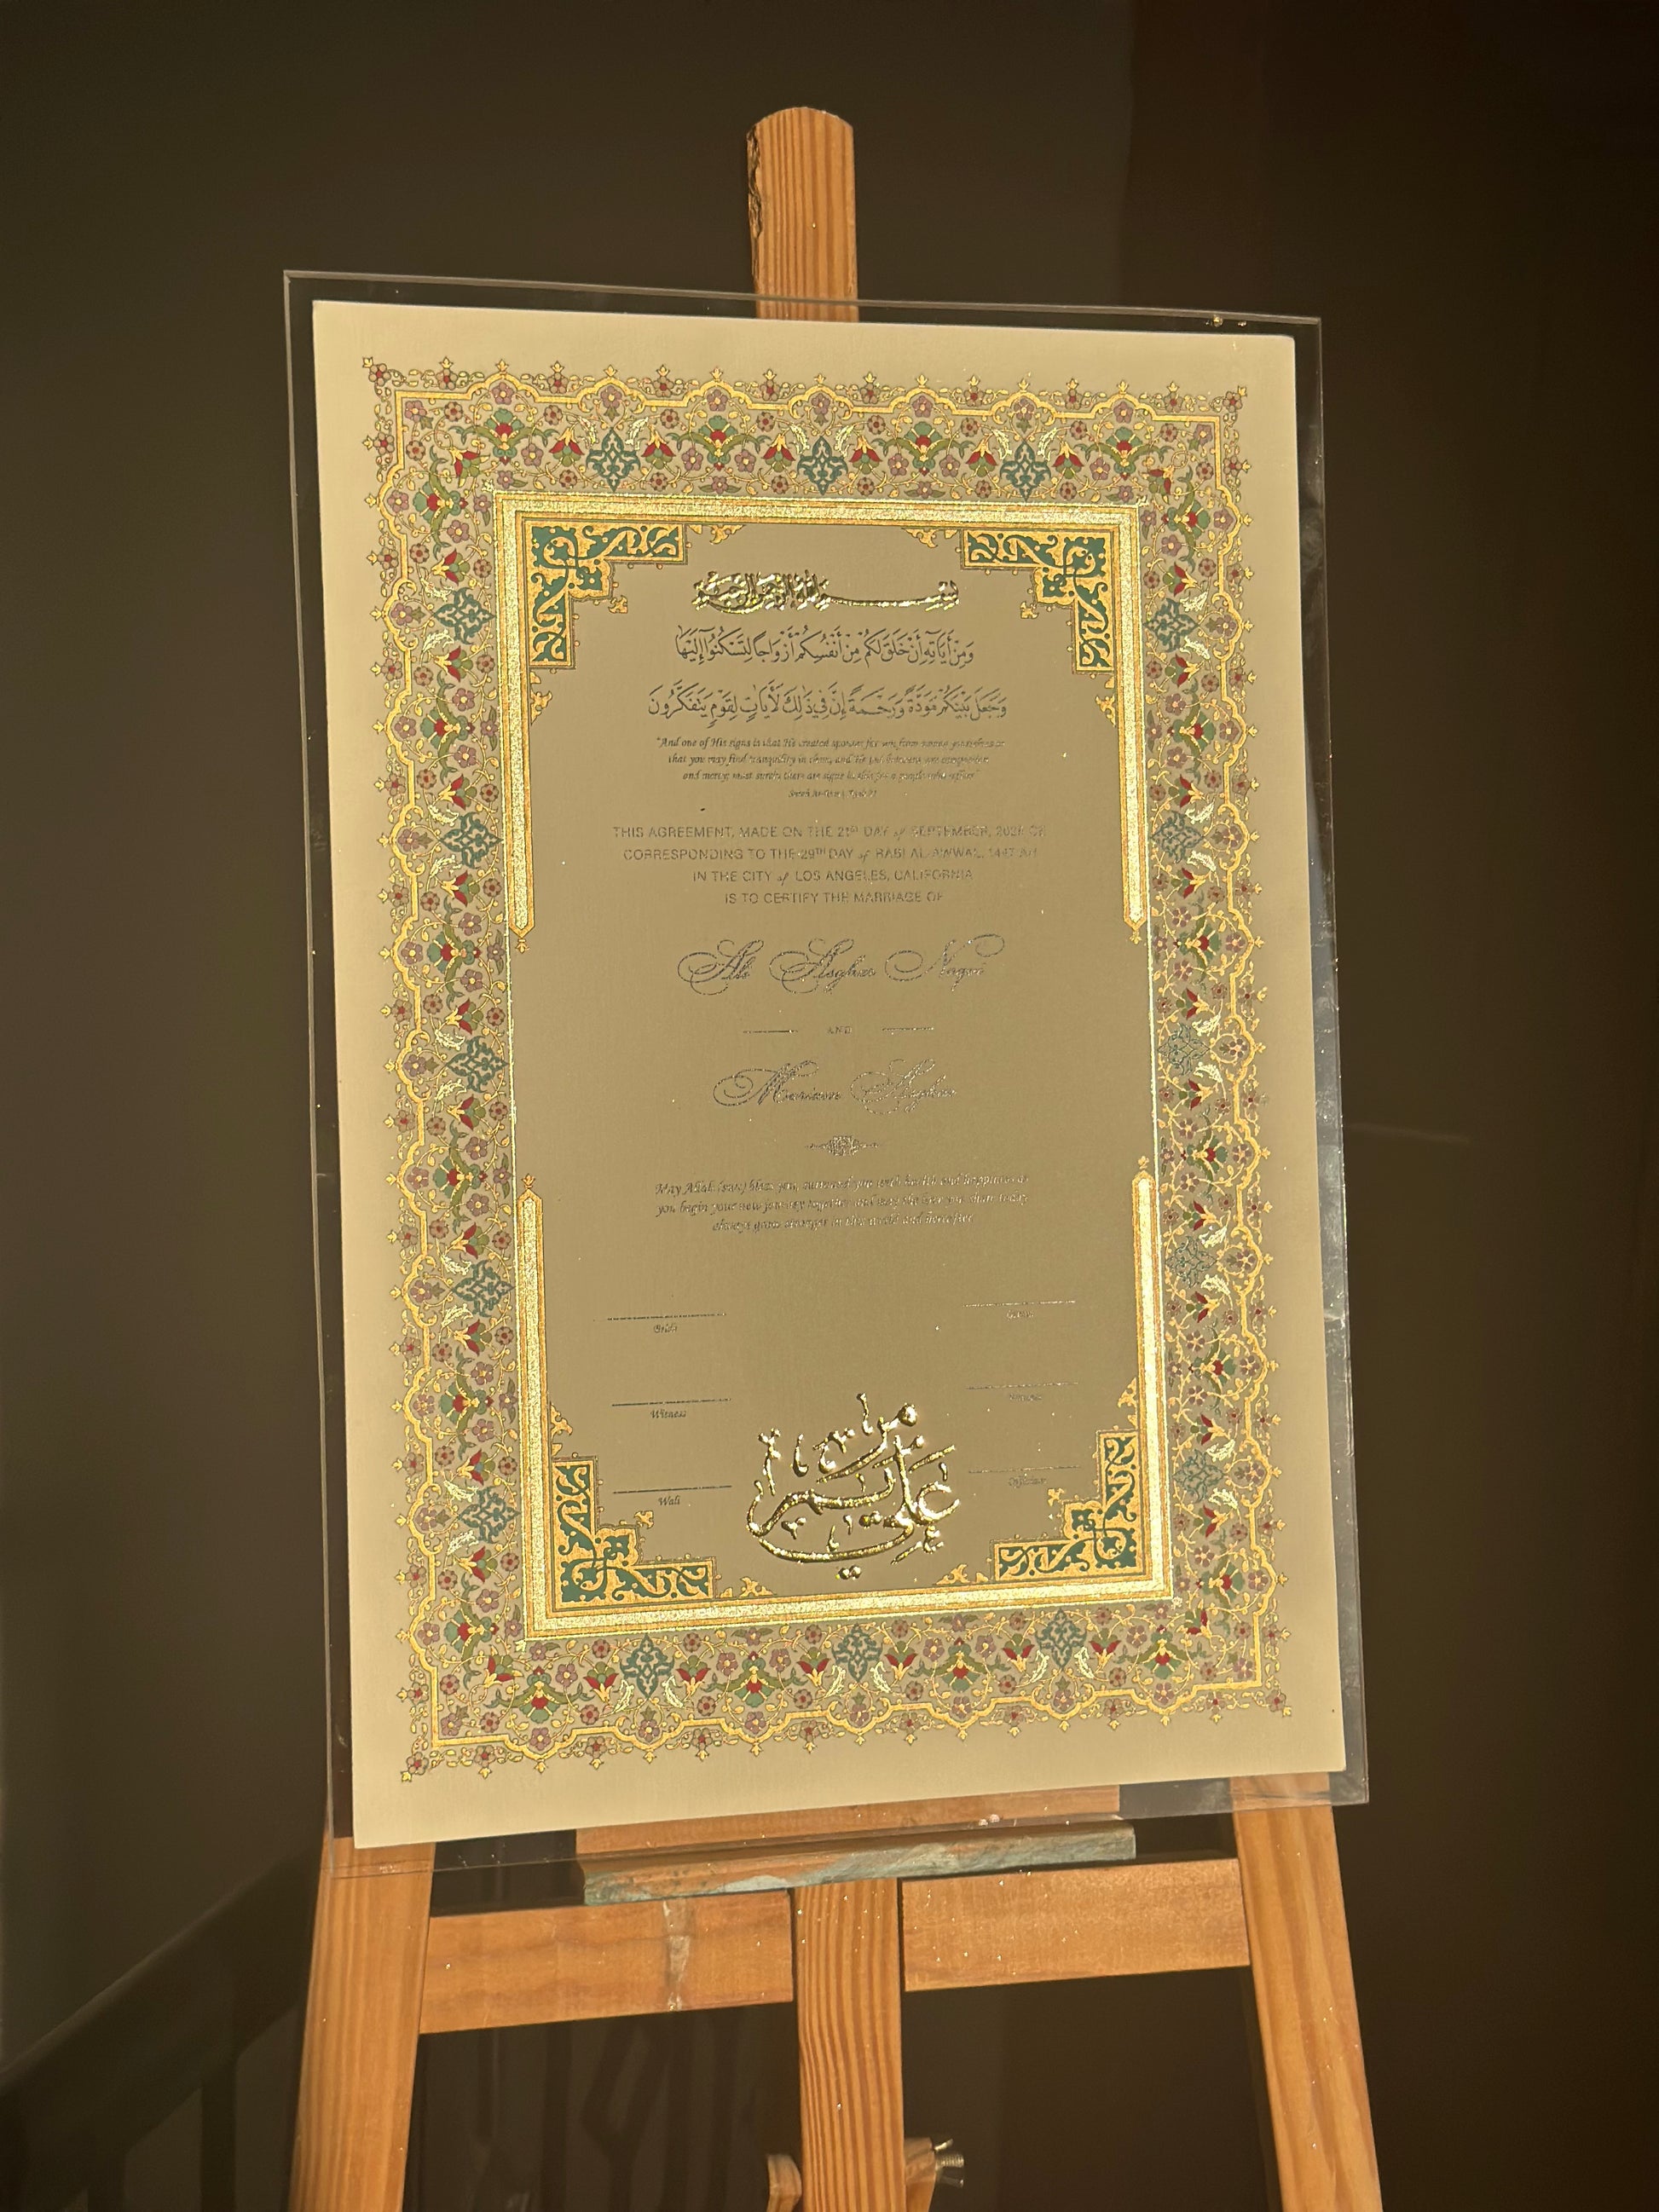 بسم الله الرحمن الرحيم
وَمِنْ آيَاتِهِ أَنْ خَلَقَ لَكُمْ مِنْ أَنْفُسِكُمْ أَزْوَاجًا لِتَسْكُنُوا إِلَيْهَا
وَجَعَلَ بَيْنَكُمْ مَوَدَّةً وَرَحْمَةً إِنَّ فِي ذَلِكَ لَآيَاتٍ لِقَوْمٍ يَتَفَكَّرُونَ
"And one of His signs is that He created spouses for you from among yourselves so
that you may find tranquility in them, and He
and mercy; most surely there are signs in this for a people who reflect"
THIS AGREEMENT, MADE ON THE 21ST DAY of SEPTEMBER, 2025 CE
CORRESPONDING TO THE 29TH DAY of RABI AL-AWWAL, 1447 AH
IN THE CITY of LOS ANGELES, CALIFORNIA
IS TO CERTIFY THE MARRIAGE OF
Ali Asghar Naqvi
AND
Mariam Asghar
May Allah (swt) bless you, surround you with health and happiness as
you begin your new journey together and may the love you share today
always grow stronger in this world and hereafter
Bride Groom
Witness Witness
Wali Officiant
مريم
علي